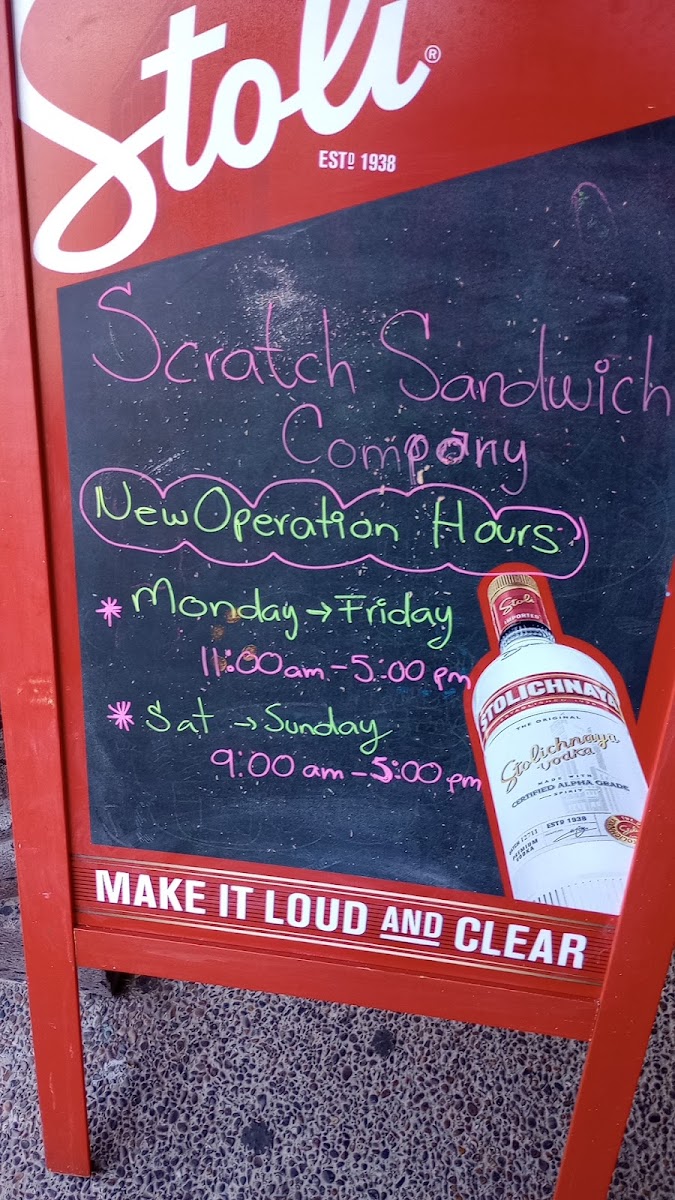 Stoli®
ESTD 1938
Scratch Sandwich
Company
New Operation Hours
* Monday → Friday
11:00 am - 5:00 pm
* Sat → Sunday
9:00 am - 5:00 pm
Stoli
IMPORTED
STOLICHNAYA
THE ORIGINAL
Stolichnaya
vodka
MADE WITH
CERTIFIED ALPHA GRADE
SPIRIT
ESTD 1938
PREMIUM
VODKA
MAKE IT LOUD AND CLEAR